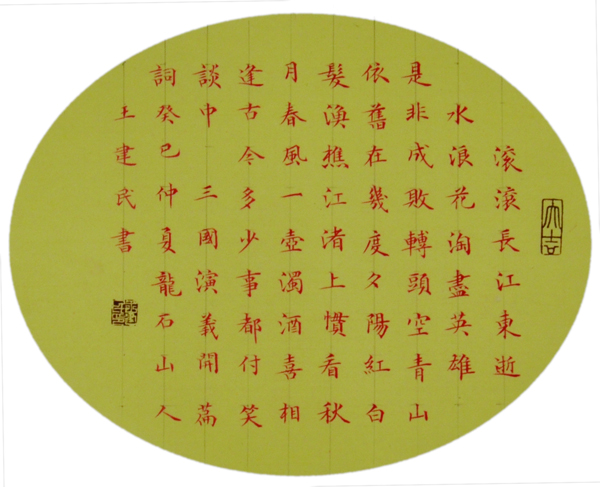 大吉
滚滚長江東逝
水浪花淘盡英雄
是非成敗轉頭空青山
依舊在幾度夕陽紅白
髮漁樵江渚上慣看秋
月春風一壺濁酒喜相
逢古今多少事都付笑
談中 三國演義開篇
詞癸巳仲夏龍石山人
王建民書